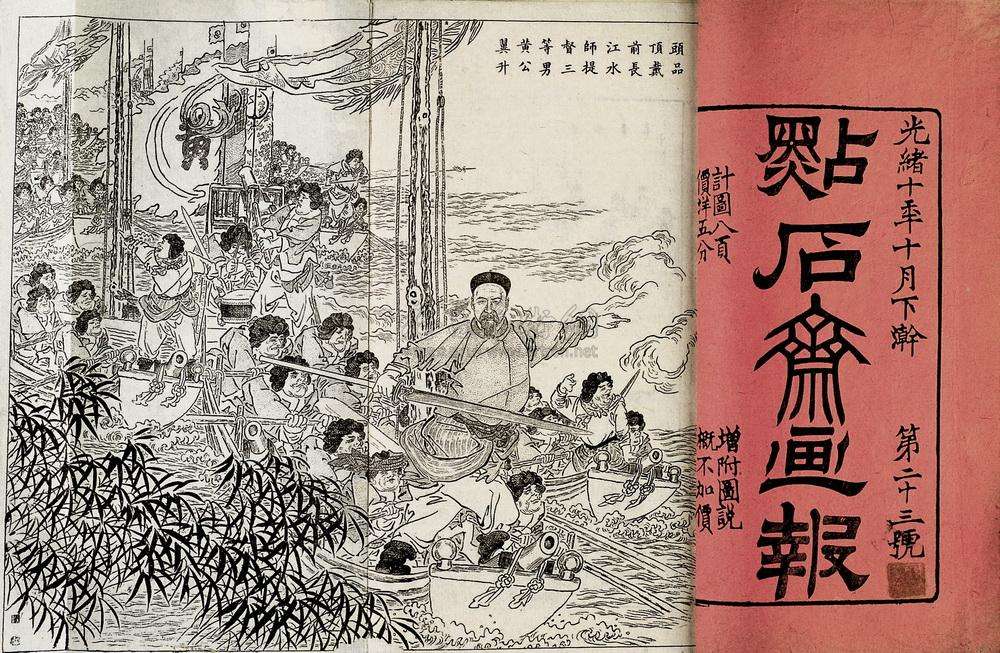 光緒十年十月下澣
第二十三號
點石齋画報
計圖八頁
價洋五分
增附圖說
概不加價
頭品
頂戴
前長
江水
師提
督三
等男
黃公
翼升
黃